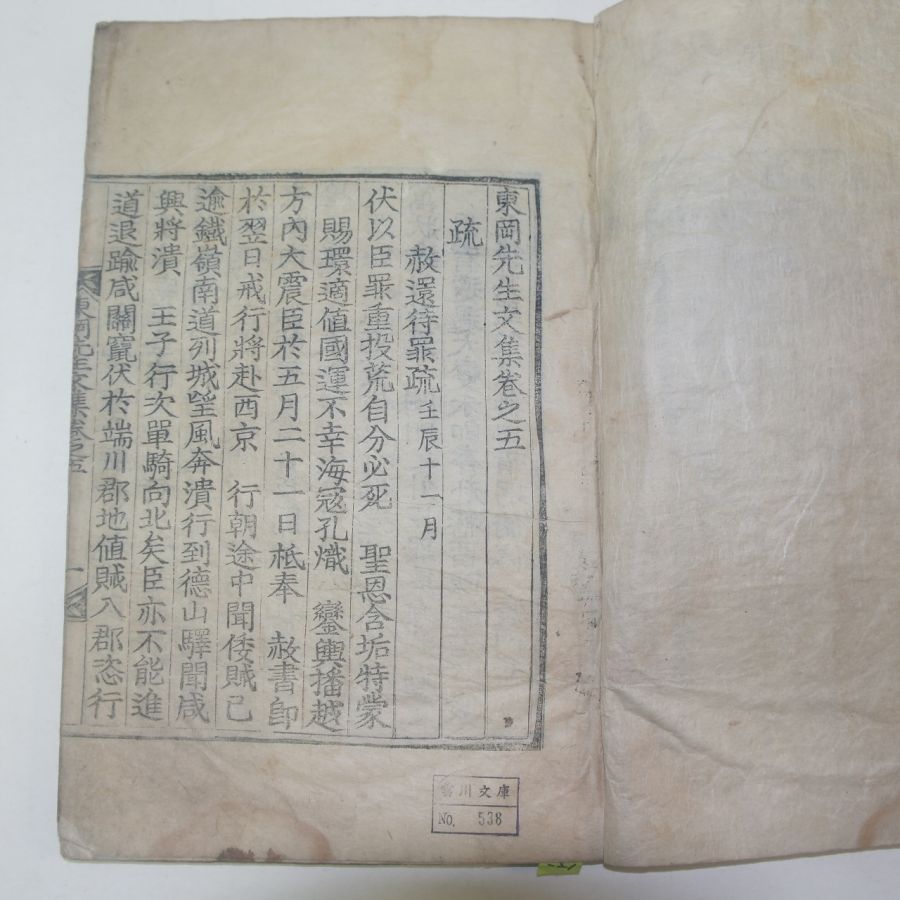 東岡先生文集卷之五
疏
赦還待罪疏 壬辰十一月
伏以臣罪重投荒自分必死 聖恩含垢特蒙
賜環適値國運不幸海寇孔熾 鑾輿播越
方內大震臣於五月二十一日祗奉 赦書卽
於翌日戒行將赴西京 行朝途中聞倭賊已
逾鐵嶺南道列城望風奔潰行到德山驛聞咸
興將潰 王子行次單騎向北矣臣亦不能進
道退踰咸關竄伏於端川郡地値賊入郡恣行
東岡先生文集卷之五
一
川文庫
No. 538